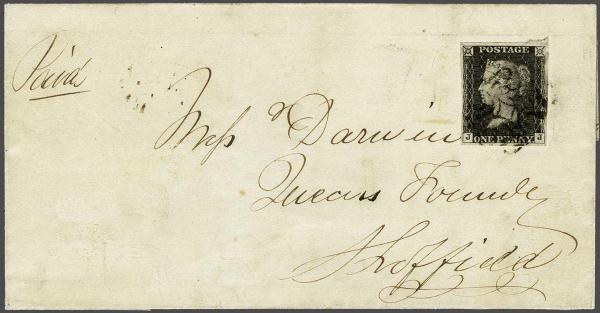 Paid
POSTAGE
J J
ONE PENNY
Mess rs Darwin
Queens Foundry
Sheffield